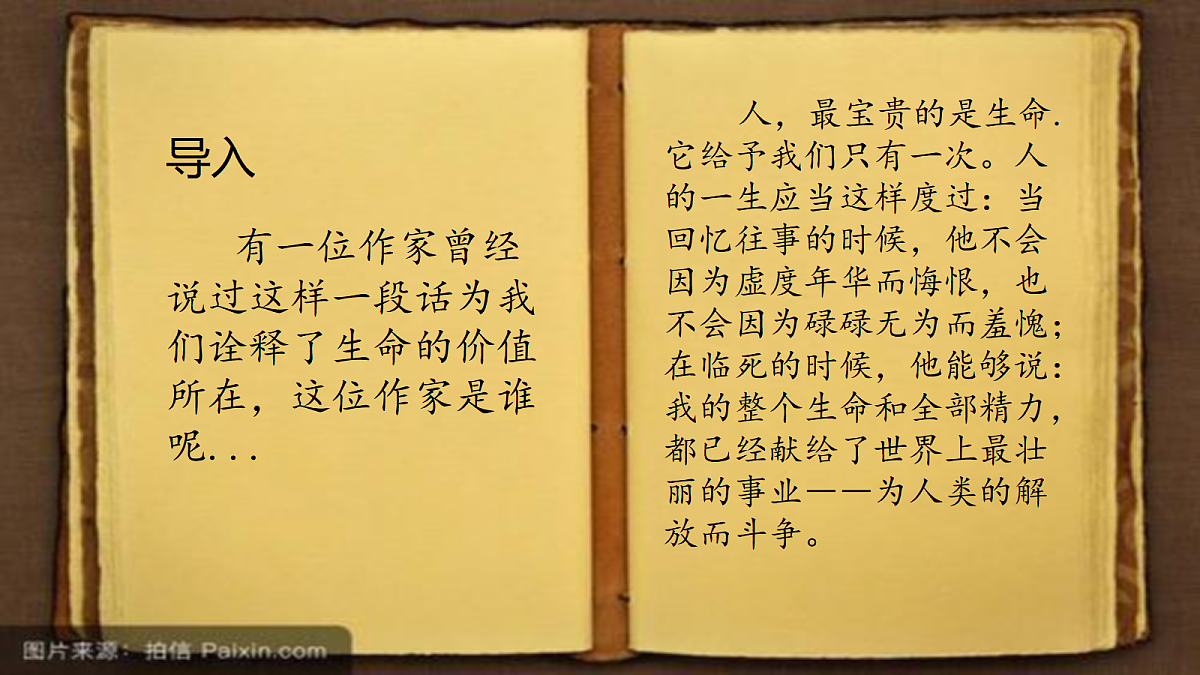 导入
有一位作家曾经
说过这样一段话为我
们诠释了生命的价值
所在，这位作家是谁
呢...
人，最宝贵的是生命.
它给予我们只有一次。人
的一生应当这样度过：当
回忆往事的时候，他不会
因为虚度年华而悔恨，也
不会因为碌碌无为而羞愧；
在临死的时候，他能够说：
我的整个生命和全部精力，
都已经献给了世界上最壮
丽的事业——为人类的解
放而斗争。
图片来源：拍信 Paixin.com